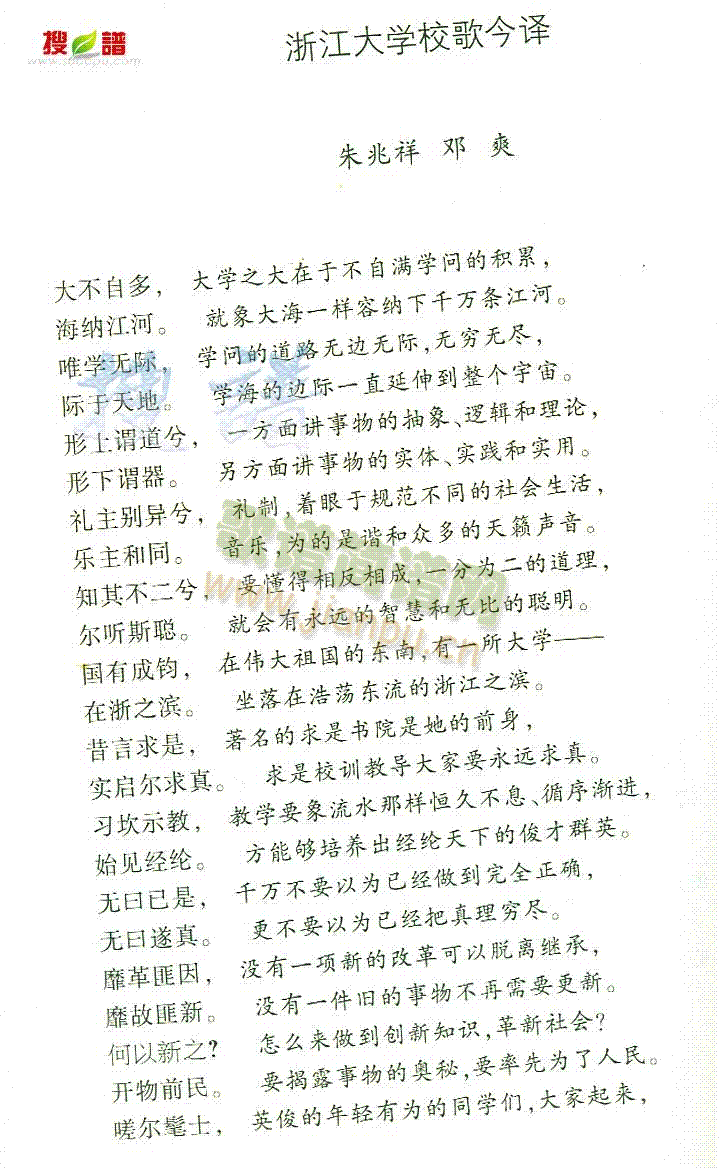 搜 譜
www.sooopu.com
浙江大学校歌今译
朱兆祥 邓 爽
大不自多， 大学之大在于不自满学问的积累，
海纳江河。 就象大海一样容纳下千万条江河。
唯学无际， 学问的道路无边无际，无穷无尽，
际于天地。 学海的边际一直延伸到整个宇宙。
形上谓道兮， 一方面讲事物的抽象、逻辑和理论，
形下谓器。 另方面讲事物的实体、实践和实用。
礼主别异兮， 礼制，着眼于规范不同的社会生活，
乐主和同。 音乐，为的是谐和众多的天籁声音。
知其不二兮， 要懂得相反相成，一分为二的道理，
尔听斯聪。 就会有永远的智慧和无比的聪明。
国有成钧， 在伟大祖国的东南，有一所大学——
在浙之滨。 坐落在浩荡东流的浙江之滨。
昔言求是， 著名的求是书院是她的前身，
实启尔求真。 求是校训教导大家要永远求真。
习坎示教， 教学要象流水那样恒久不息、循序渐进，
始见经纶。 方能够培养出经纶天下的俊才群英。
无曰已是， 千万不要以为已经做到完全正确，
无曰遂真。 更不要以为已经把真理穷尽。
靡革匪因， 没有一项新的改革可以脱离继承，
靡故匪新。 没有一件旧的事物不再需要更新。
何以新之？ 怎么来做到创新知识，革新社会？
开物前民。 要揭露事物的奥秘，要率先为了人民。
嗟尔髦士， 英俊的年轻有为的同学们，大家起来，
歌谱简谱网
www.jianpu.cn